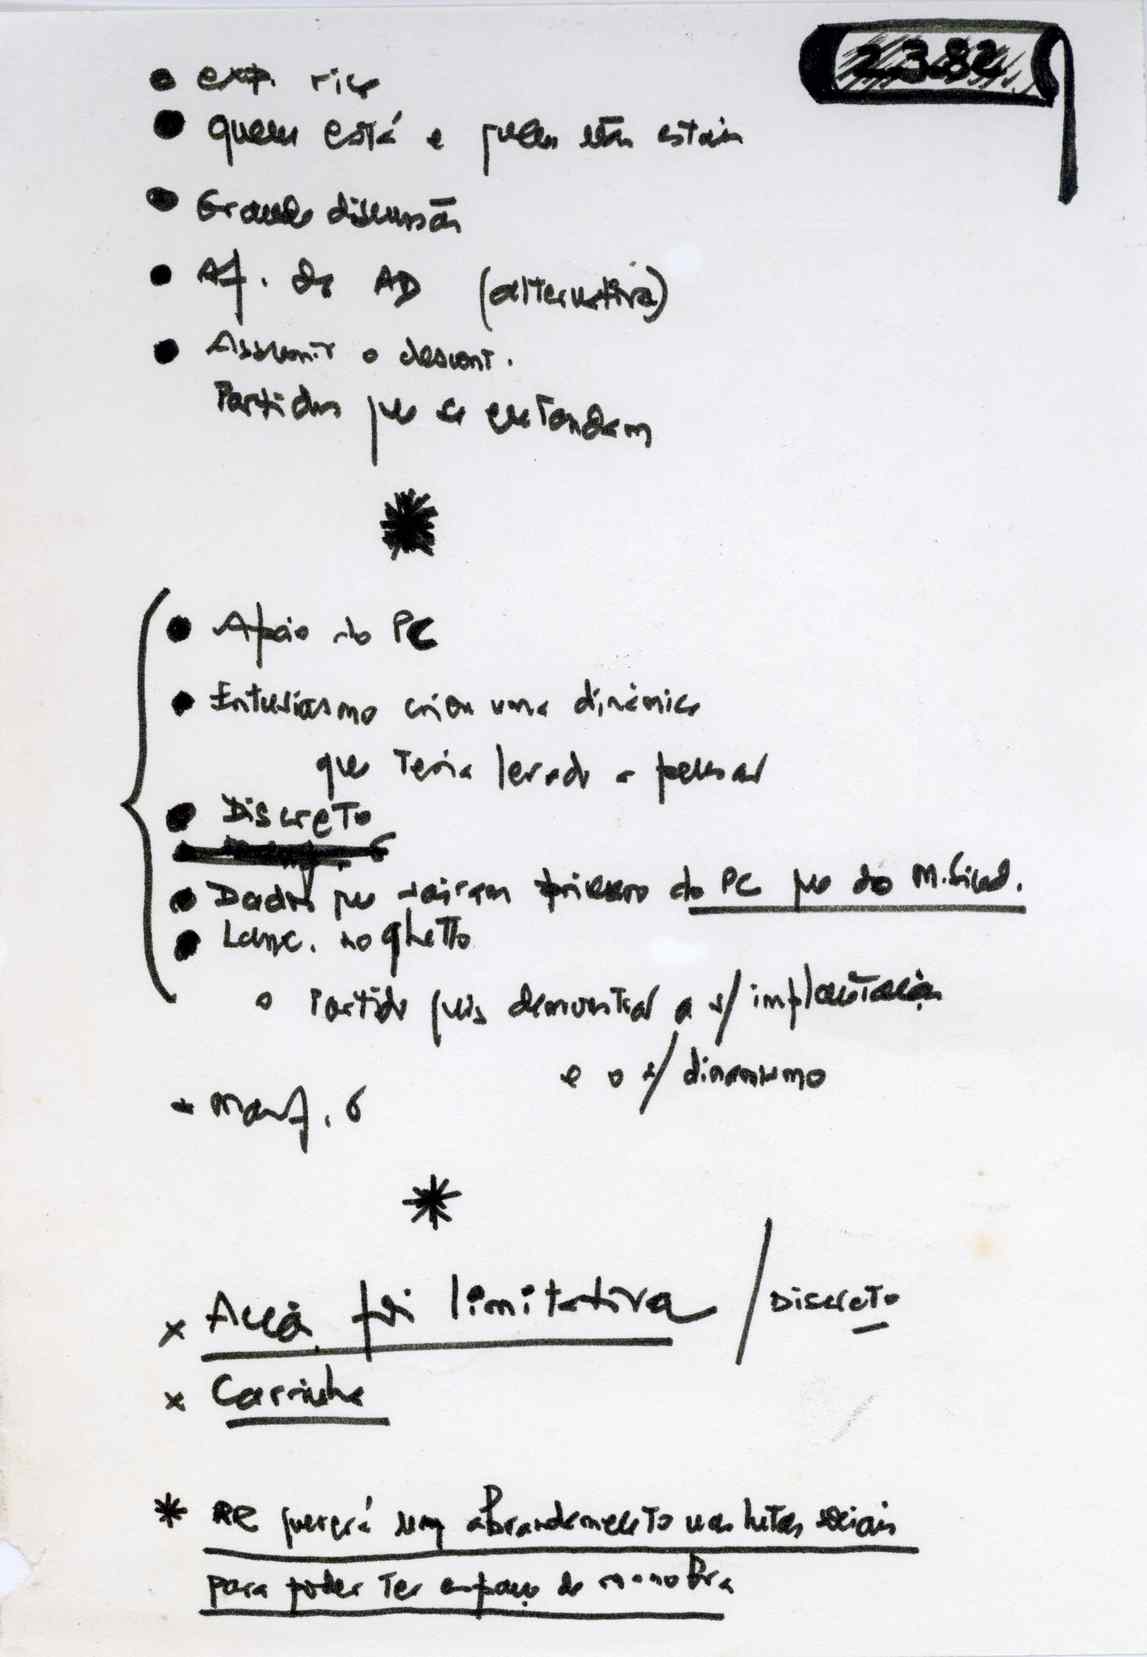 2.3.82
• exp. rica
• quem está e quem não está
• Grande discussão
• Af. da AD (alternativa)
• Assumir o descont.
Partidos que se entendem
• Apoio do PC
• Entusiasmo criou uma dinâmica
que teria levado a pensar
• Discreto
• que saíram primeiro do PC que do M. Sind.
• Lanç. no ghetto
o Partido quis demonstrar a s/ implantação
e o s/ dinamismo
Manif. 6
x Acção foi limitativa / Discreto
x Carrinha
* RE quererá um abrandamento nas lutas sociais
para poder ter espaço de manobra